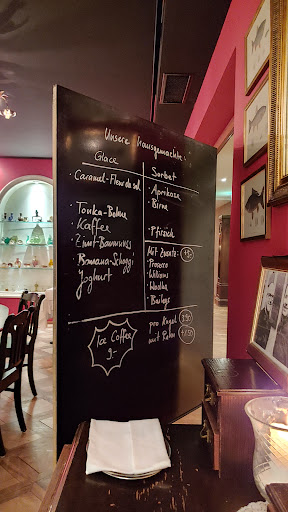 Unsere hausgemachte:
Glace
• Caramel-Fleur de sel
• Tonka-Bohne
• Kaffee
• Zimt-Baumnuss
• Banana-Schoggi
• Joghurt
Sorbet
• Aprikose
• Birne
• Pfirsich
Mit Zusatz: +3.-
• Prosecco
• Williams
• Wodka
• Baileys
Ice Coffee
9.-
pro Kugel 3.90
mit Rahm +1.50